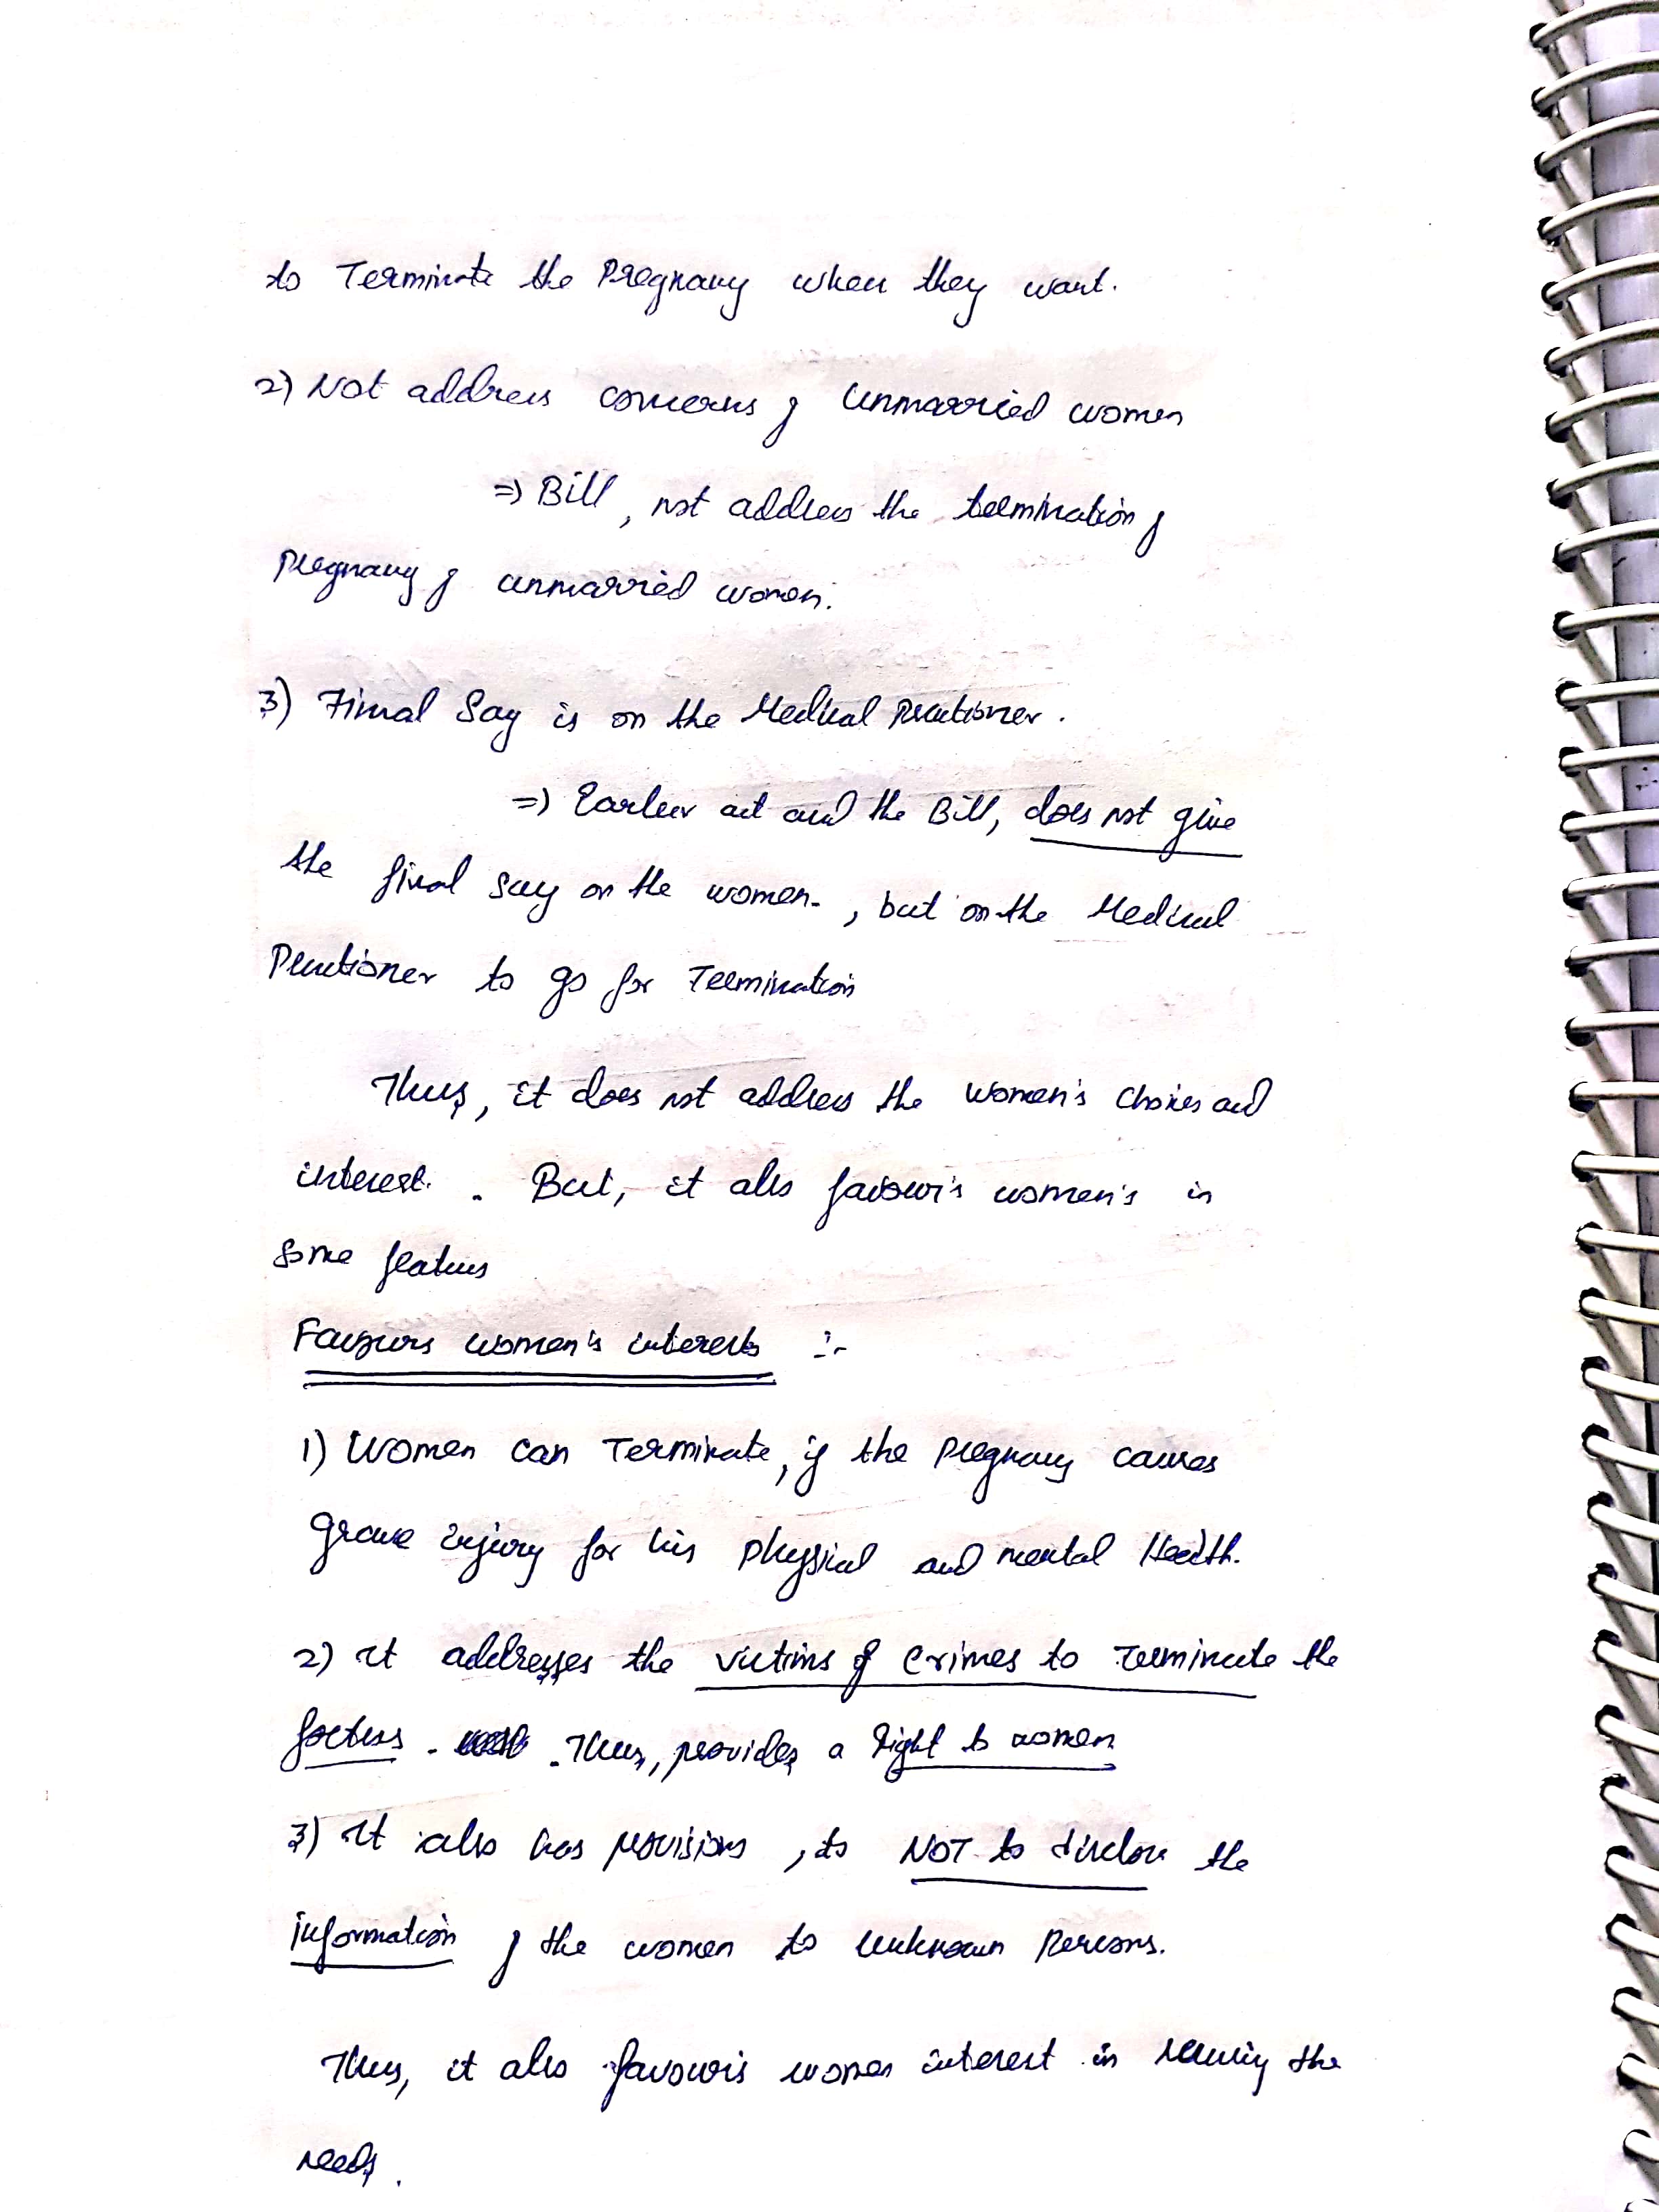 to Terminate the Pregnancy when they want.
2) Not address concerns of Unmarried women
=> Bill, not address the termination of
pregnancy of unmarried women.
3) Final Say is on the Medical Practioner.
=> Earlier act and the Bill, does not give
the final say on the women, but on the Medical
Practioner to go for Termination
Thus, it does not address the women's choices and
interest. But, it also favour's women's in
some features
Favours women's interests :-
1) Women can Terminate, if the pregnancy causes
grave injury for his physical and mental Health.
2) It addresses the victims of crimes to Terminate the
foetus. Thus, provides a Right to women
3) It also has provisions, to NOT to disclose the
information of the women to unknown Persons.
Thus, it also favour's women interest in the
needs.